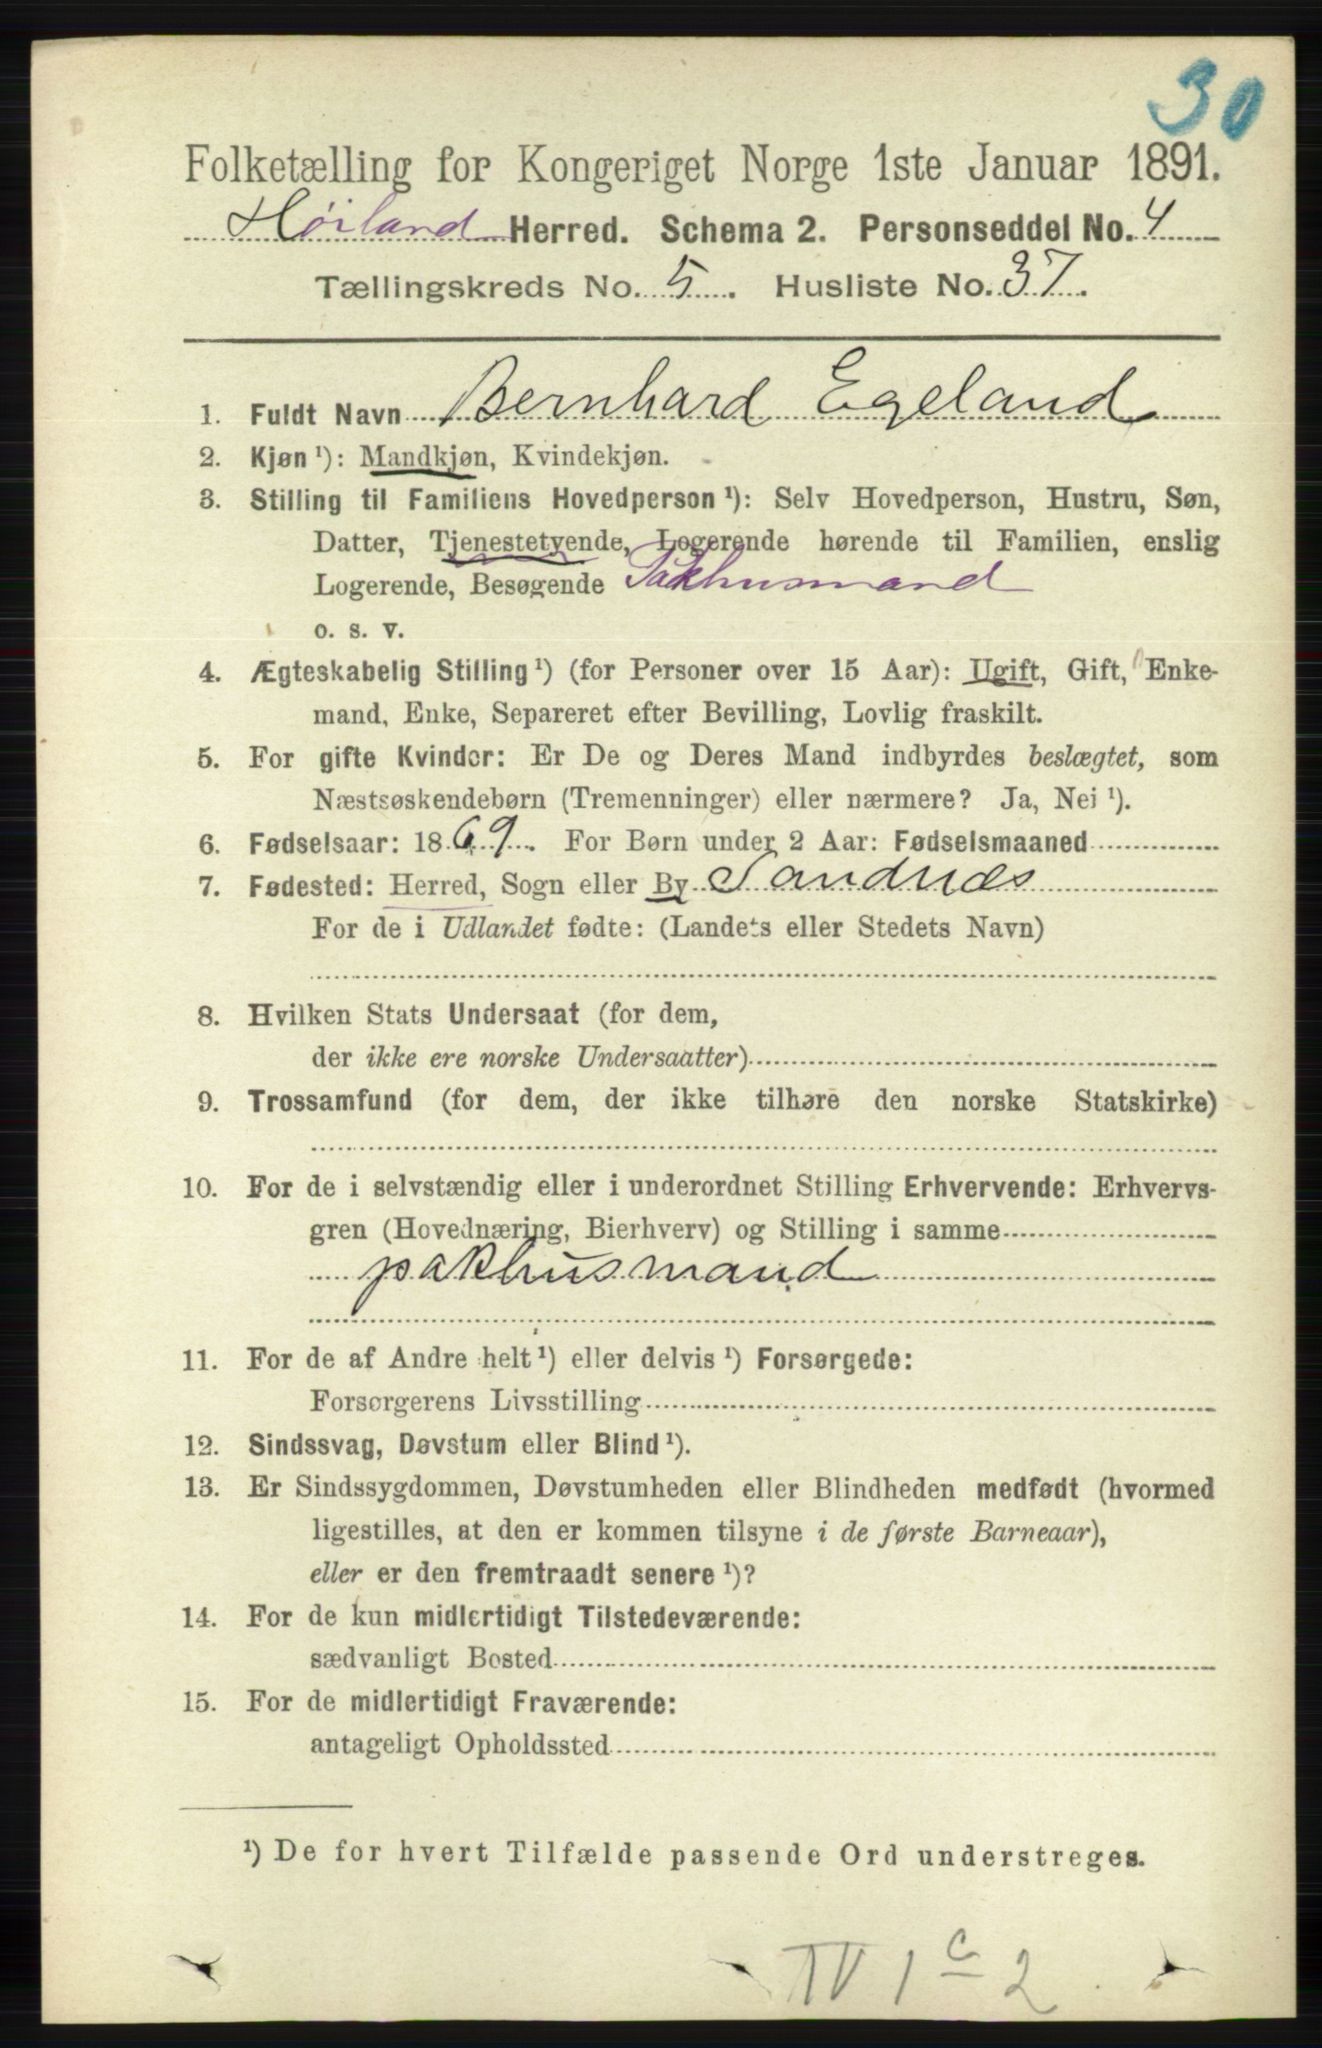 30
Folketælling for Kongeriget Norge 1ste Januar 1891.
Høiland Herred. Schema 2. Personseddel No. 4
Tællingskreds No. 5. Husliste No. 37.
1. Fuldt Navn Bernhard Egeland
2. Kjøn ¹): Mandkjøn, Kvindekjøn.
3. Stilling til Familiens Hovedperson ¹): Selv Hovedperson, Hustru, Søn,
Datter, Tjenestetyende, Logerende hørende til Familien, enslig
Logerende, Besøgende Pakhusmand
o. s. v.
4. Ægteskabelig Stilling ¹) (for Personer over 15 Aar): Ugift, Gift, Enke-
mand, Enke, Separeret efter Bevilling, Lovlig fraskilt.
5. For gifte Kvinder: Er De og Deres Mand indbyrdes beslægtet, som
Næstsøskendebørn (Tremenninger) eller nærmere? Ja, Nei ¹).
6. Fødselsaar: 1869. For Børn under 2 Aar: Fødselsmaaned
7. Fødested: Herred, Sogn eller By Sandnæs
For de i Udlandet fødte: (Landets eller Stedets Navn)
8. Hvilken Stats Undersaat (for dem,
der ikke ere norske Undersaatter)
9. Trossamfund (for dem, der ikke tilhøre den norske Statskirke)
10. For de i selvstændig eller i underordnet Stilling Erhvervende: Erhvervs-
gren (Hovednæring, Bierhverv) og Stilling i samme
pakhusmand
11. For de af Andre helt ¹) eller delvis ¹) Forsørgede:
Forsørgerens Livsstilling
12. Sindssvag, Døvstum eller Blind ¹).
13. Er Sindssygdommen, Døvstumheden eller Blindheden medfødt (hvormed
ligestilles, at den er kommen tilsyne i de første Barneaar),
eller er den fremtraadt senere ¹)?
14. For de kun midlertidigt Tilstedeværende:
sædvanligt Bosted
15. For de midlertidigt Fraværende:
antageligt Opholdssted
¹) De for hvert Tilfælde passende Ord understreges.
IV 1 c 2